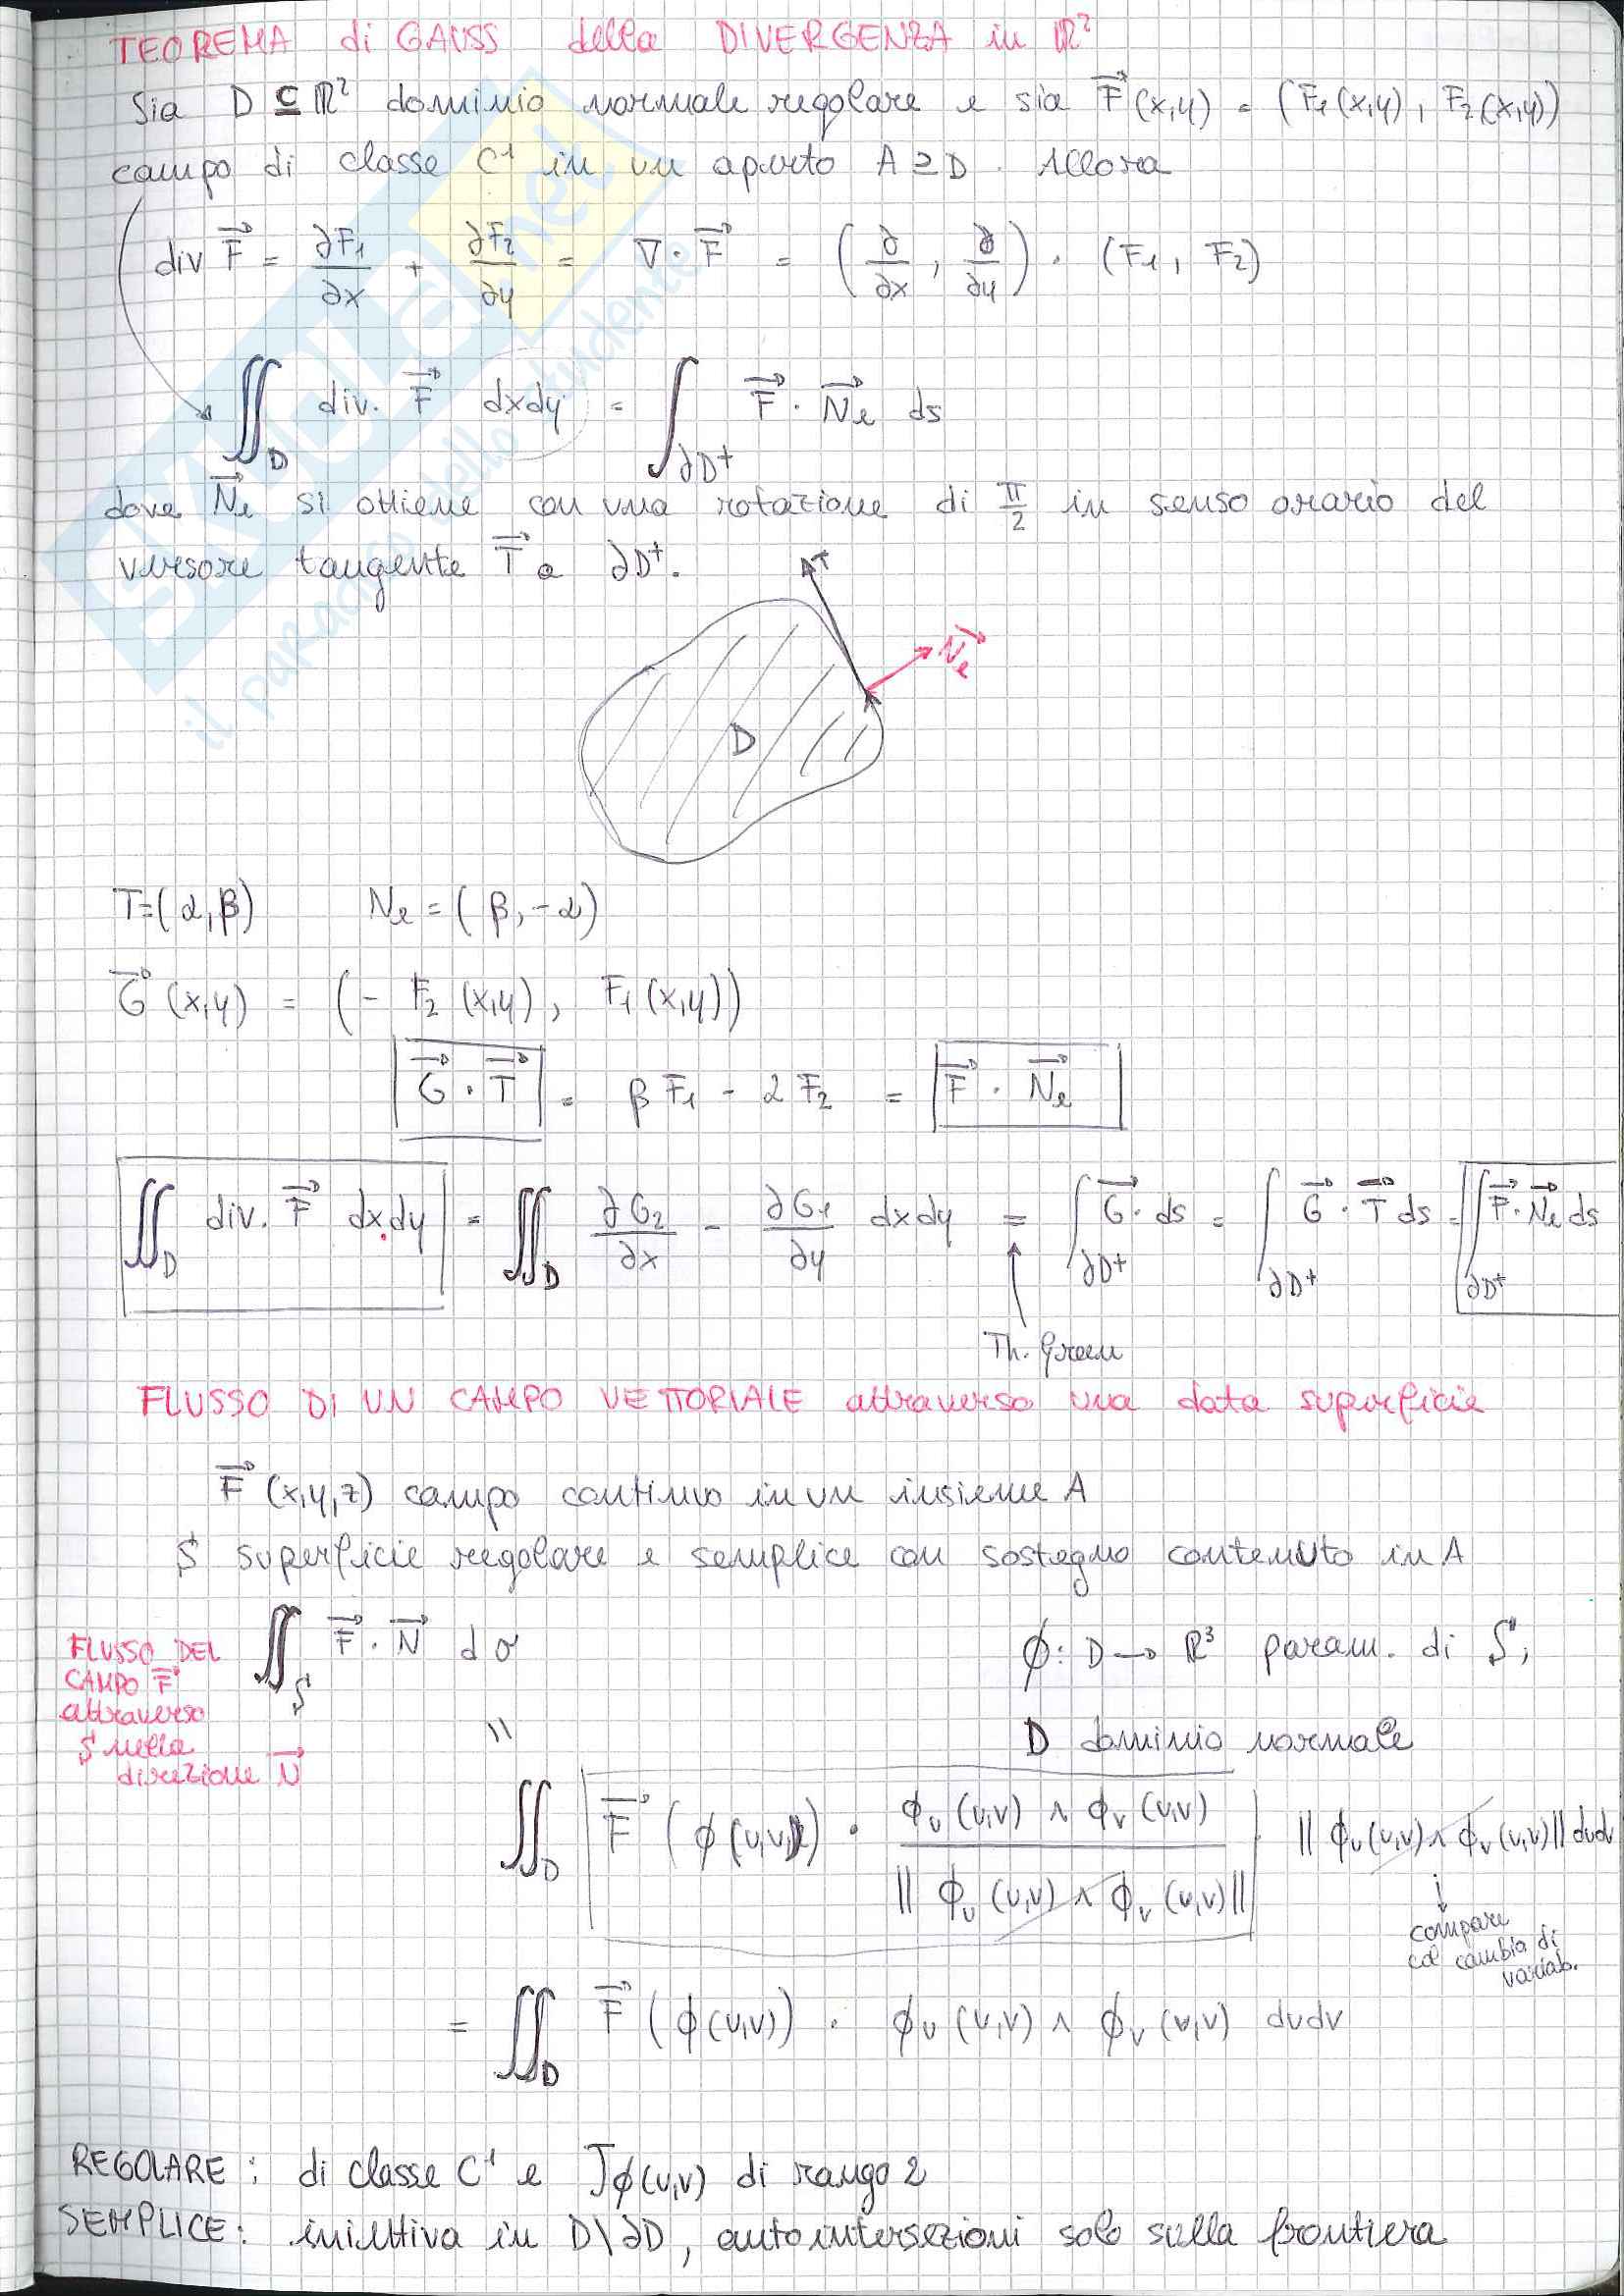 TEOREMA di GAUSS della DIVERGENZA in ℝ²
Sia D ⊆ ℝ² dominio normale regolare e sia F⃗(x,y) = (F₁(x,y), F₂(x,y))
campo di classe C¹ in un aperto A ⊇ D. Allora
div F⃗ = ∂F₁/∂x + ∂F₂/∂y = ∇·F⃗ = (∂/∂x, ∂/∂y) · (F₁, F₂)
∬_D div. F⃗ dxdy = ∫_∂D⁺ F⃗ · N⃗e ds
dove N⃗e si ottiene con una rotazione di π/2 in senso orario del
versore tangente T⃗ a ∂D⁺.
T
N⃗e
D
T=(α,β) Ne=(β,-α)
G⃗(x,y) = (-F₂(x,y), F₁(x,y))
G⃗·T⃗ = βF₁ - αF₂ = F⃗·N⃗e
∬_D div. F⃗ dxdy = ∬_D ∂G₂/∂x - ∂G₁/∂y dxdy = ∫_∂D⁺ G⃗·ds = ∫_∂D⁺ G⃗·T⃗ ds = ∫_∂D⁺ F⃗·N⃗e ds
Th. Green
FLUSSO DI UN CAMPO VETTORIALE attraverso una data superficie
F⃗(x,y,z) campo continuo in un insieme A
S superficie regolare e semplice con sostegno contenuto in A
FLUSSO DEL
CAMPO F⃗
attraverso
S nella
direzione N⃗
∬_S F⃗·N⃗ dσ
φ: D → ℝ³ param. di S;
=
D dominio normale
∬_D F⃗(φ(u,v)) · φu(u,v) ∧ φv(u,v) / ‖φu(u,v) ∧ φv(u,v)‖ · ‖φu(u,v) ∧ φv(u,v)‖ dudv
compare
col cambio di
variab.
= ∬_D F⃗(φ(u,v)) · φu(u,v) ∧ φv(u,v) dudv
REGOLARE: di classe C¹ e Jφ(u,v) di rango 2
SEMPLICE: iniettiva in D\∂D, autointersezioni solo sulla frontiera
SKUOLA.net
il paradiso dello studente